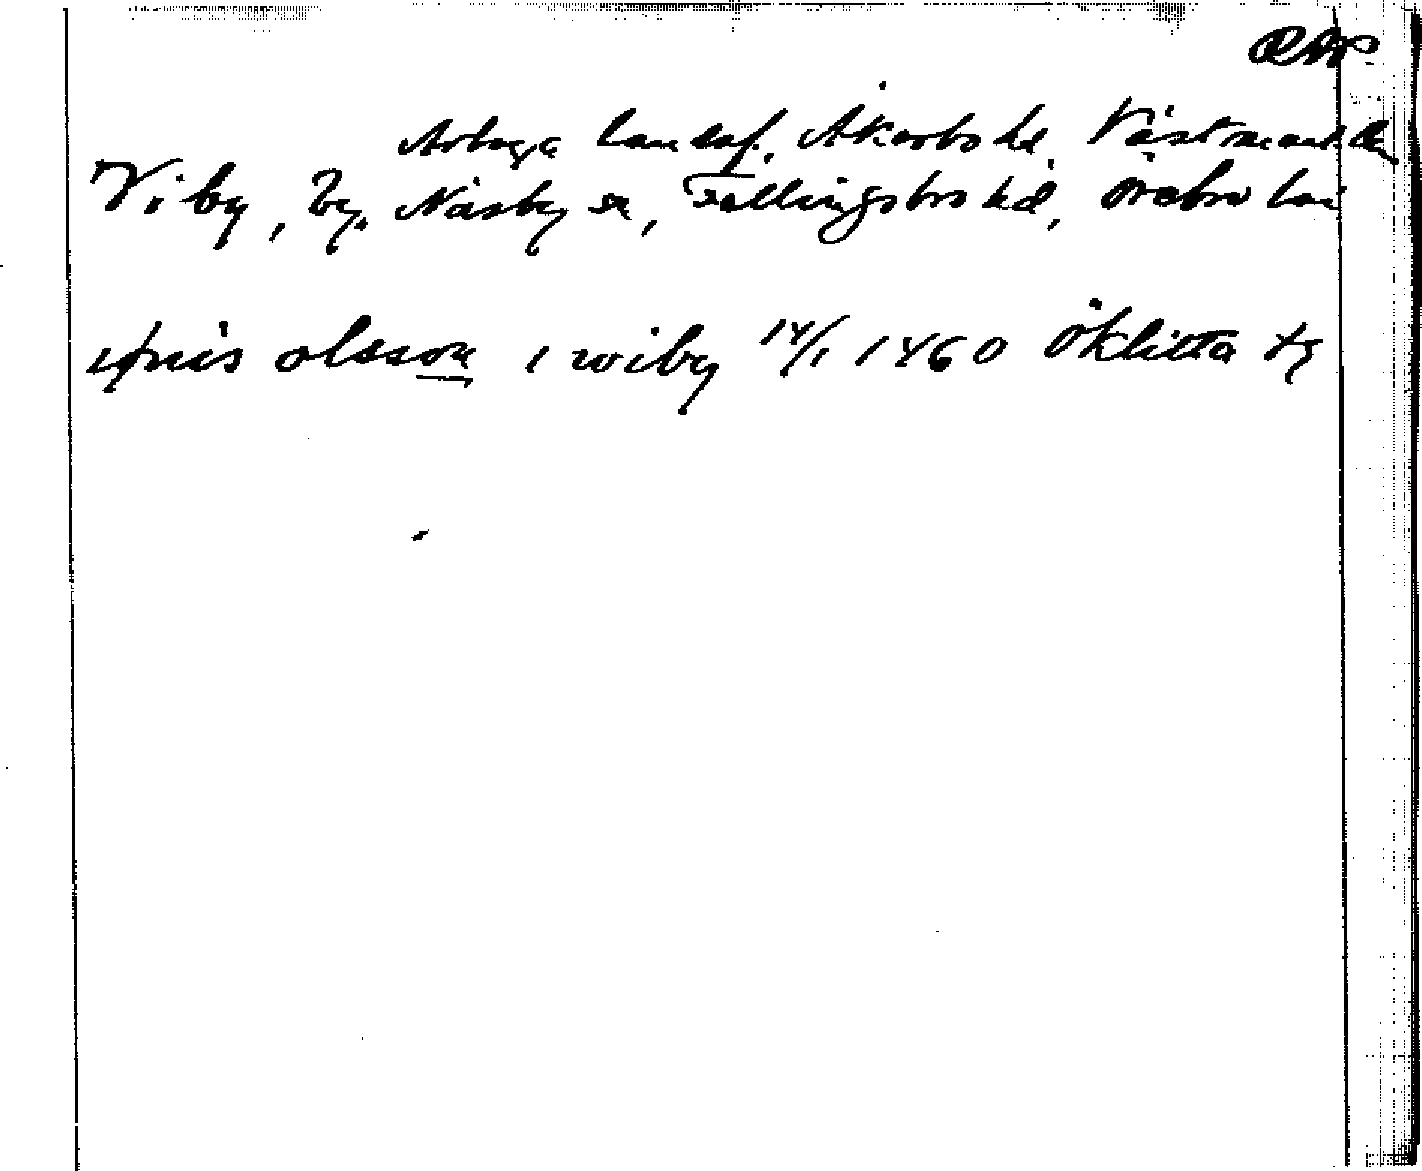 Arboga landsf. Åkerbo hd Västmanl. län
Viby, by. Näsby sn, Fellingsbro hd, Örebro län
olsson i wiby 14/1 1460 Öklitta tg